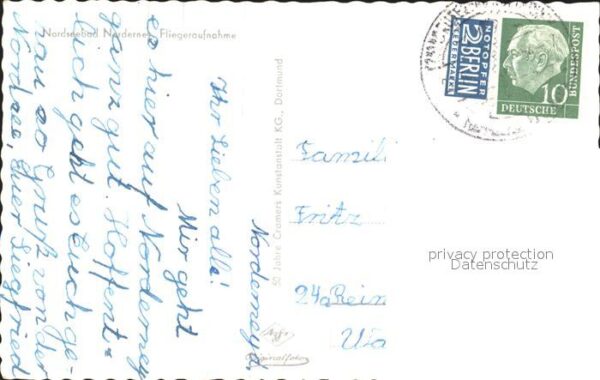 Nordseebad Norderney Fliegeraufnahme
Norderney d.
Ihr Lieben all'!
Mir geht
es hier auf Norderney
ganz gut. Hoffent-
lich geht es Euch ge-
nau so Gruß von der
Nordsee, Euer Siegfried
50 Jahre Cramers Kunstanstalt KG., Dortmund
Agfa
Originalfoto
NOTOPFER
2 BERLIN
STEUERMARKE
DEUTSCHE
BUNDESPOST
10
Famili
Fritz
24a Rein
privacy protection
Datenschutz